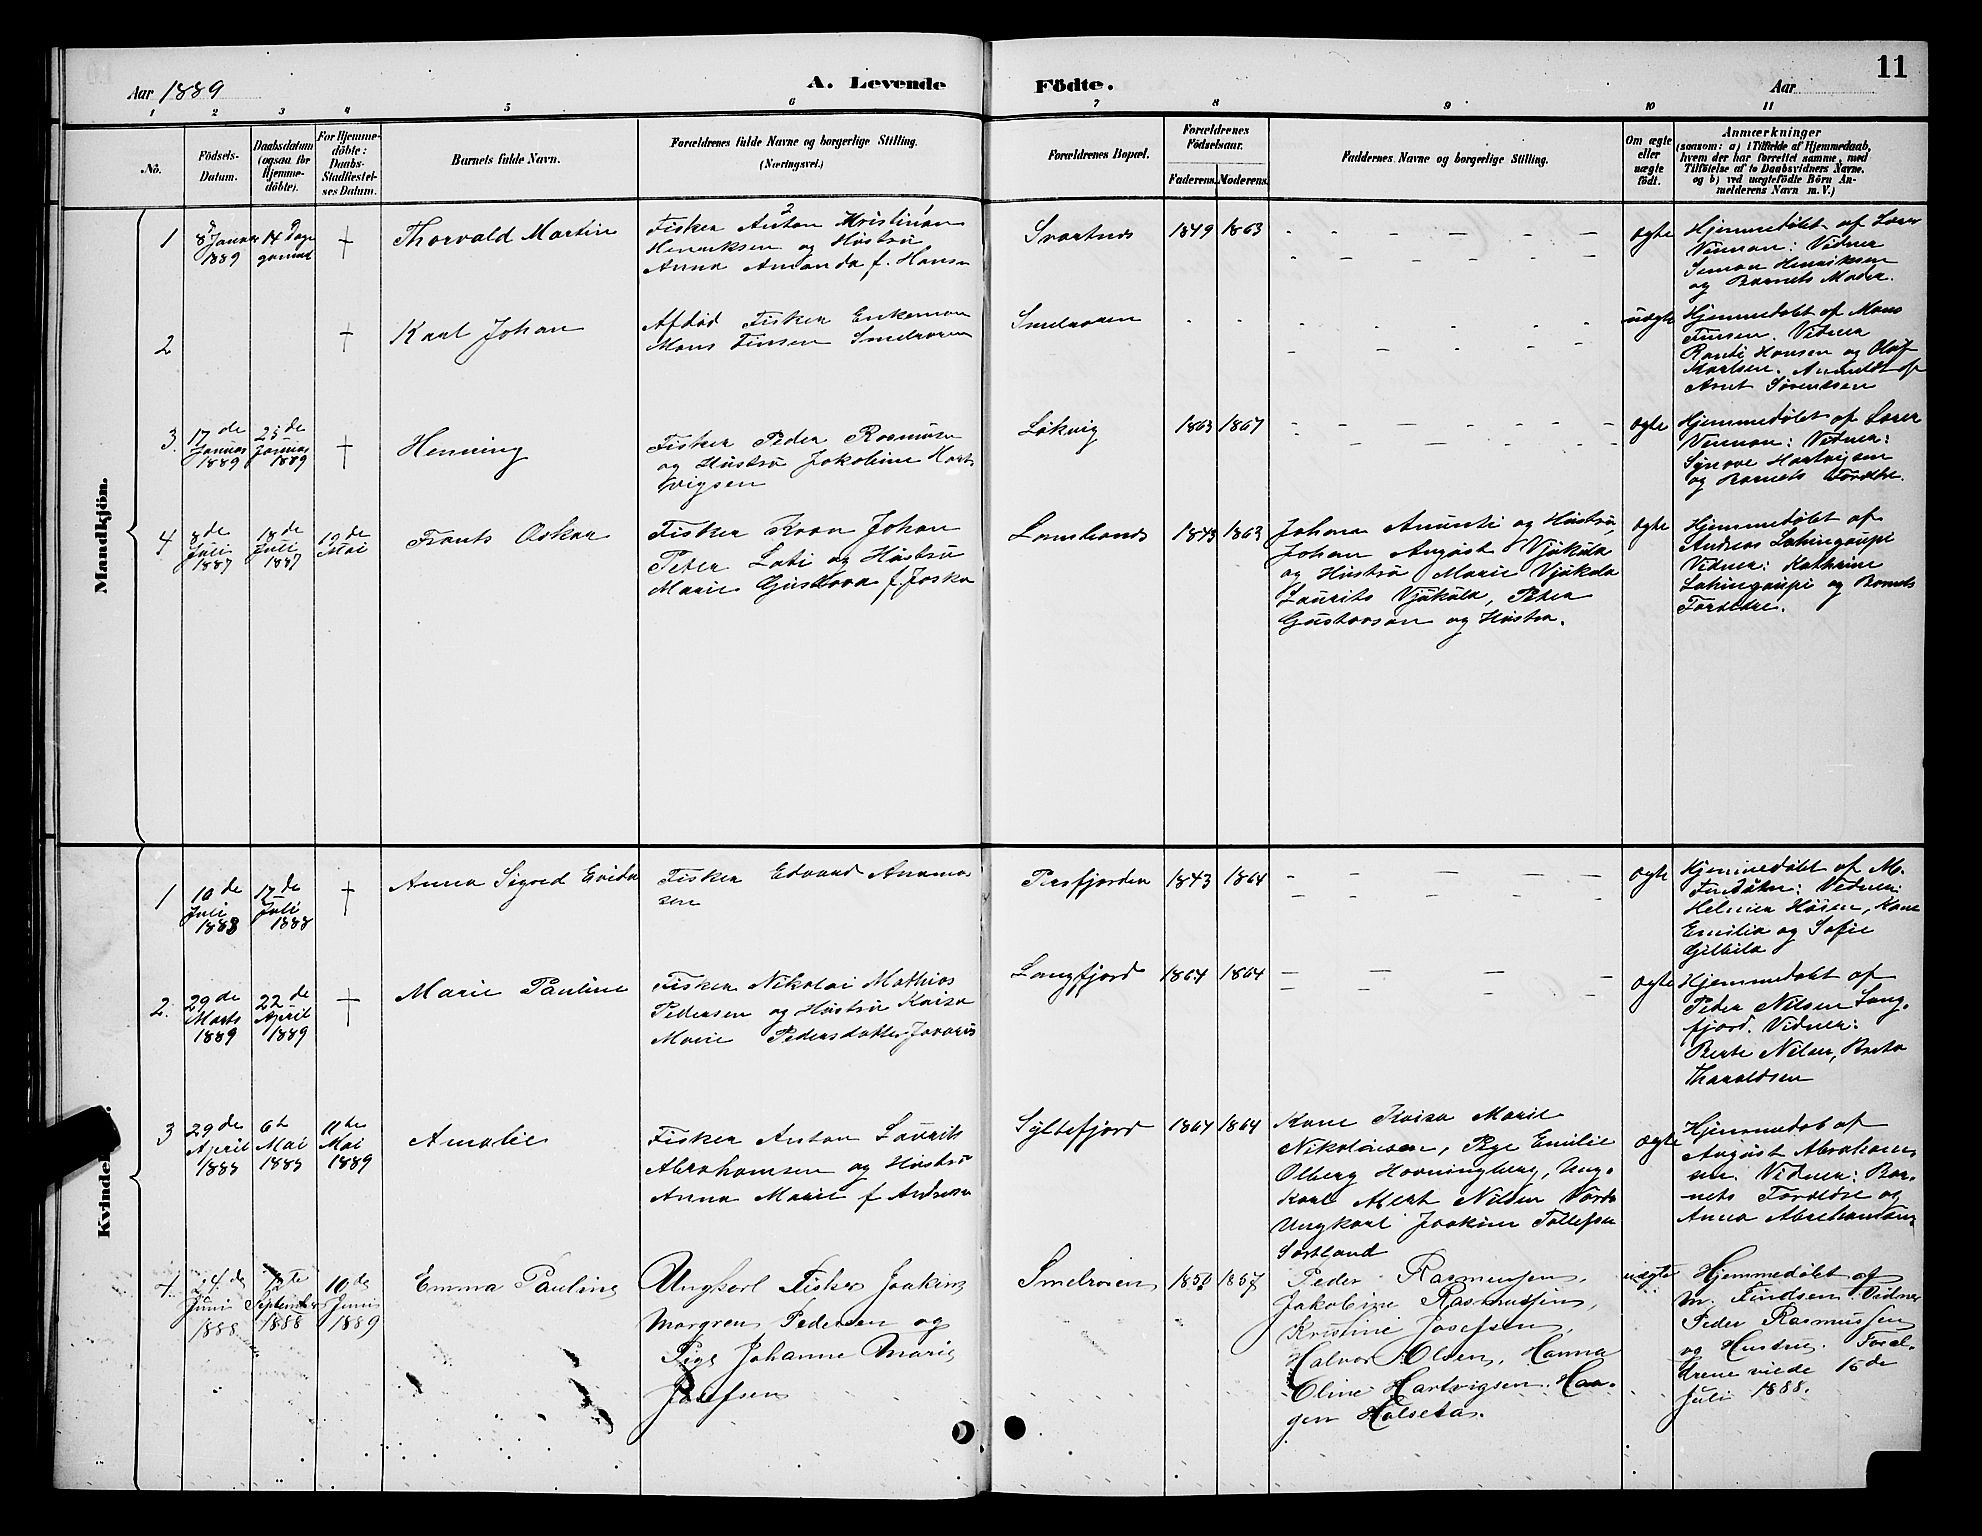 11
Aar 1889
A. Levende Födte.
Aar
1 2 3 4 5 6 7 8 9 10 11
No.
Födsels-
Datum.
Daabsdatum
(ogsaa for
Hjemme-
döbte).
For Hjemme-
döbte:
Daabs-
Stadfæstel-
ses Datum.
Barnets fulde Navn.
Forældrenes fulde Navne og borgerlige Stilling.
(Næringsvei.)
Forældrenes Bopæl.
Forældrenes
Födselsaar.
Faderens. Moderens.
Faddernes Navne og borgerlige Stilling.
Om ægte
eller
uægte
födt.
Anmærkninger
(saasom: a) i Tilfælde af Hjemmedaab,
hvem der har forrettet samme, med
Tilföielse af to Daabsvidners Navne,
og b) ved uægtefödte Börn An-
melderens Navn m. V.)
Mandkjön.
1
8de Januar
1889
14 Dage
gammel
+
Thorvald Martin
Fisker Anton Kristinan
Henriksen og Hustru
Anna Amanda f. Hansen
Svartnes
1849 1863
ægte
Hjemmedøbt af Lærer
Vennon: Vidner
Simon Henriksen
og Barnets Moder.
2
+
Karl Johan
Afdød Fisker Enkeman
Mons Finsen Smelroren
Smelroren
uægte
Hjemmedøbt af Mons
Finsen. Vidner
Ranti Hansen og Olaf
Karlsen. Anmeldt af
Arnt Sørensen
3.
17de
Januar
1889
25de
Januar
1889
+
Henning
Fisker Peder Rasmusen
og Hustru Jakobine Hart
vigsen
Løkvig
1863 1867
ægte
Hjemmedøbt af Lærer
Vennon: Vidner:
Synøve Hartvigsen
og Barnets Forældre.
4
8de
Juli
1887
18de
Juli
1887
19de
Mai
Frants Oskar
Fisker Johan
Peter Lati og Hustru
Marie Gustava f. Joska
1843 1863
Johan Anunti og Hustru,
Johan August Vjukula
og Hustru Marie Vjukula
Laurits Vjukula, Peter
Gustavsen og Hustru.
ægte
Hjemmedøbt af
Andreas Lahingaupi
Vidner: Kathrine
Lahingaupi og Barnets
Forældre.
Kvinde
1
10de
Juli
1888
17de
Juli
1888
+
Anna Sigrid Evida
Fisker Edvard Anama
sen
Persfjorden
1843 1864
ægte
Hjemmedøbt af M.
Vidner:
Helmer Høsen, Kone
Emilia og Sofie
Gilbila
2.
29de
Marts
1889
22de
April
1889
+
Marie Pauline
Fisker Nikolai Mathias
Pedersen og Hustru Kaisa
Marie Pedersdatter
Langfjord
1864 1864
ægte
Hjemmedøbt af
Peder Nilsen Lang-
fjord. Vidner:
Berte Nilsen, Berta
Tharaldsen
3
29de
April
1888
6te
Mai
1888
11de
Mai
1889
Amalie
Fisker Anton Laurits
Abrahamsen og Hustru
Anna Marie f Andersen
Syltefjord
1864 1864
Kone Kaisa Marie
Nikolaisen, Pige Emilie
Olberg Havningberg, Ung-
karl Albert Nilsen Vardø
Ungkarl Joakim Tollefsen
Sortland
ægte
Hjemmedøb af
August Abraham
sen. Vidner: Bar-
nets Forældre og
Anna Abrahamsen
4.
24de
Juni
1888.
September
1888
10de
Juni
1889
Emma Pauline
Ungkarl Fisker Joakim
Margrens Pedersen og
Pige Johanne Marie
Josefsen
Smelroren
1850 1857
Peder Rasmussen,
Jakobine Rasmussen,
Kristine Josefsen,
Halvor Olsen, Hanna
Oline Hartvigsen. Haa-
gen Halseta.
uægte
Hjemmedøbt af
M. Findsen. Vidner
Peder Rasmussen
og Hustru. Foræl-
drene viede 15de
Juli 1888.